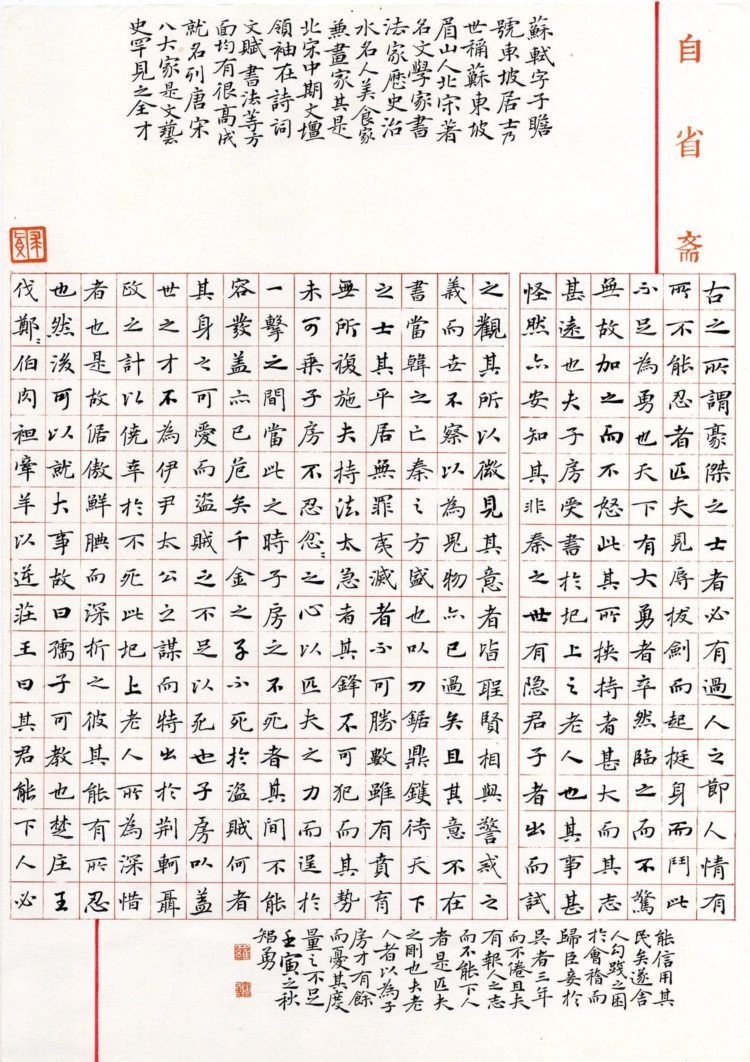 自省斋
蘇軾字子瞻
號東坡居士乃
世稱蘇東坡
眉山人北宋著
名文學家書
法家歷史治
水名人美食家
兼畫家其是
北宋中期文壇
領袖在詩詞
文賦書法等方
面均有很高成
就名列唐宋
八大家是文藝
史罕見之全才
古之所謂豪傑之士者必有過人之節人情有
所不能忍者匹夫見辱拔劍而起挺身而鬥此
不足為勇也天下有大勇者卒然臨之而不驚
無故加之而不怒此其所挾持者甚大而其志
甚遠也夫子房受書於圯上之老人也其事甚
怪然亦安知其非秦之世有隐君子者出而試
之觀其所以微見其意者皆聖賢相與警戒之
義而世不察以為鬼物亦已過矣且其意不在
書當韓之亡秦之方盛也以刀鋸鼎鑊待天下
之士其平居無罪夷滅者不可勝數雖有賁育
無所複施夫持法太急者其鋒不可犯而其勢
未可乘子房不忍忿〻之心以匹夫之力而逞於
一擊之間當此之時子房之不死者其間不能
容發蓋亦已危矣千金之子不死於盜賊何者
其身之可愛而盜賊之不足以死也子房以盖
世之才不為伊尹太公之謀而特出於荆軻聶
政之計以僥幸於不死此圯上老人所為深惜
者也是故倨傲鮮腆而深折之彼其能有所忍
也然後可以就大事故曰孺子可教也楚庄王
伐鄭〻伯肉袒牽羊以逆莊王曰其君能下人必
能信用其
民矣遂舍
人勾踐之困
於會稽而
歸臣妾於
吳者三年
而不倦且夫
有報人之志
而不能下人
者是匹夫
之剛也夫老
人者以為子
房才有餘
而憂其度
量之不足
壬寅之秋
智勇